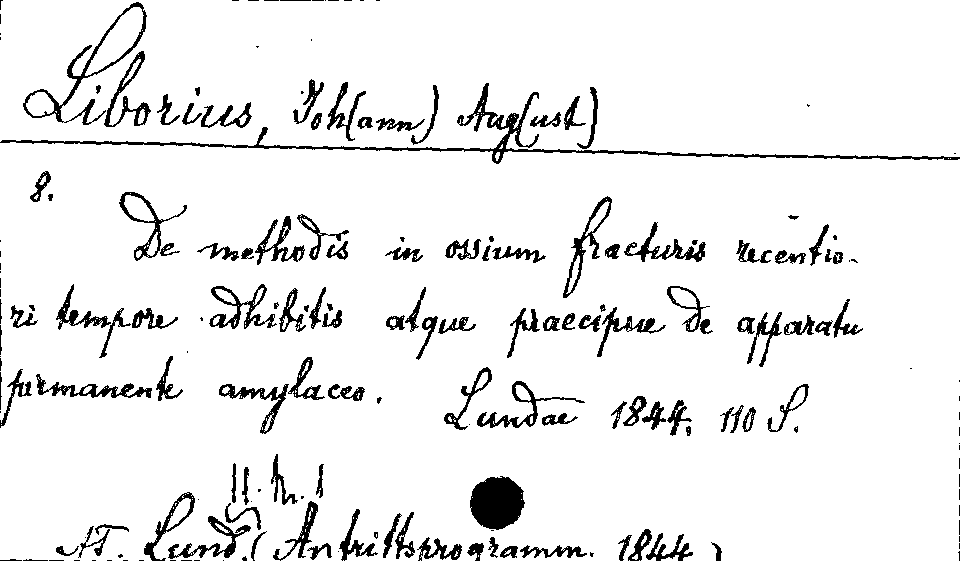 Liborius, Joh(ann) Aug(ust)
8.
De methodis in ossium fracturis recentio-
ri tempore adhibitis atque praecipue de apparatu
permanente amylaceo. Lundae 1844. 110 S.
11. Nr. 1
AT. Lund. (Antrittsprogramm. 1844)